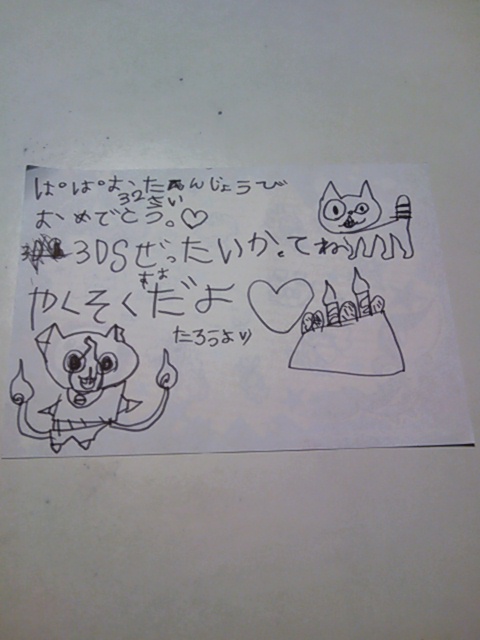 ぱぱおたんじょうび
32さい
おめでとう。♡
3DSぜったいかってね
やくそくだよ
たろうより